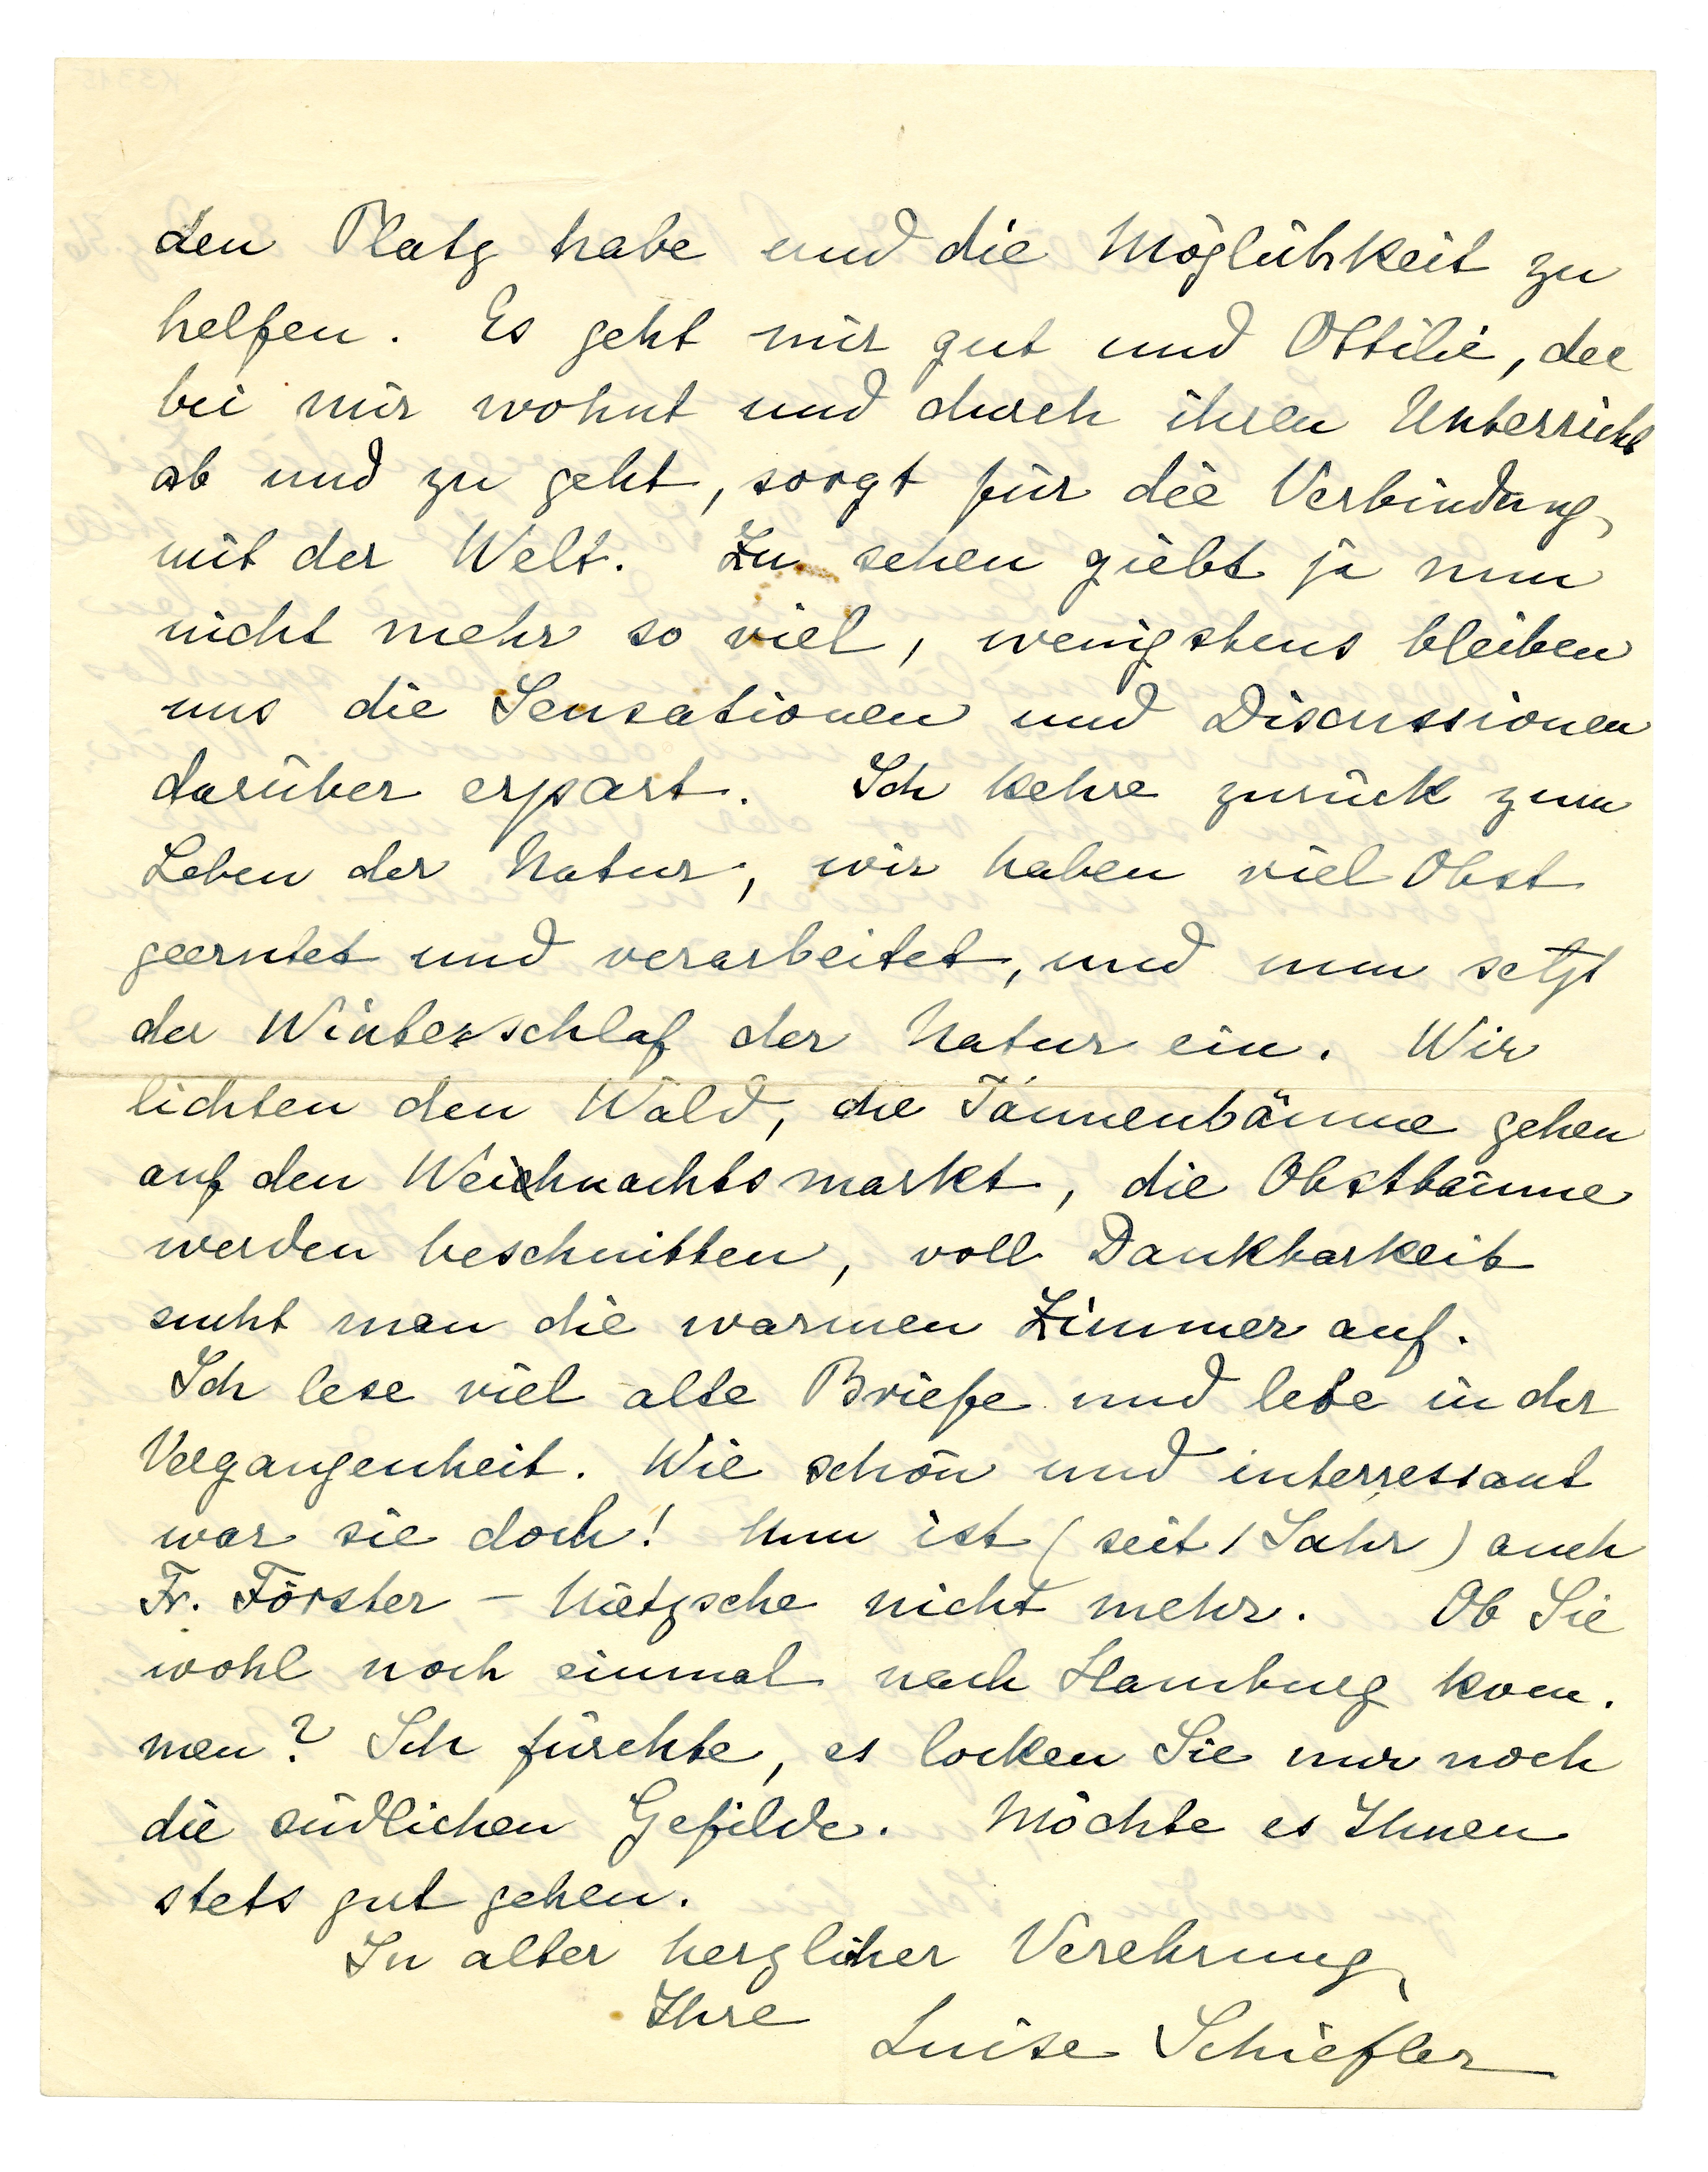 den Platz habe und die Möglichkeit zu
helfen. Es geht mir gut und Ottilie, die
bei mir wohnt und durch ihren Unterricht
ab und zu geht, sorgt für die Verbindung
mit der Welt. Zu sehen giebt ja nun
nicht mehr so viel, wenigstens bleiben
uns die Sensationen und Discussionen
darüber erspart. Ich kehre zurück zum
Leben der Natur, wir haben viel Obst
geerntet und verarbeitet, und nun setzt
der Winterschlaf der Natur ein. Wir
lichten den Wald, die Tannenbäume gehen
auf den Weihnachtsmarkt, die Obstbäume
werden beschnitten, voll Dankbarkeit
sucht man die warmen Zimmer auf.
Ich lese viel alte Briefe und lebe in der
Vergangenheit. Wie schön und interressant
war sie doch! Nun ist (seit 1 Jahr) auch
Fr. Förster - Nietzsche nicht mehr. Ob Sie
wohl noch einmal nach Hamburg kom-
men? Ich fürchte, es locken Sie nur noch
die südlichen Gefilde. Möchte es Ihnen
stets gut gehen.
In alter herzlicher Verehrung
Ihre
Luise Schiefler